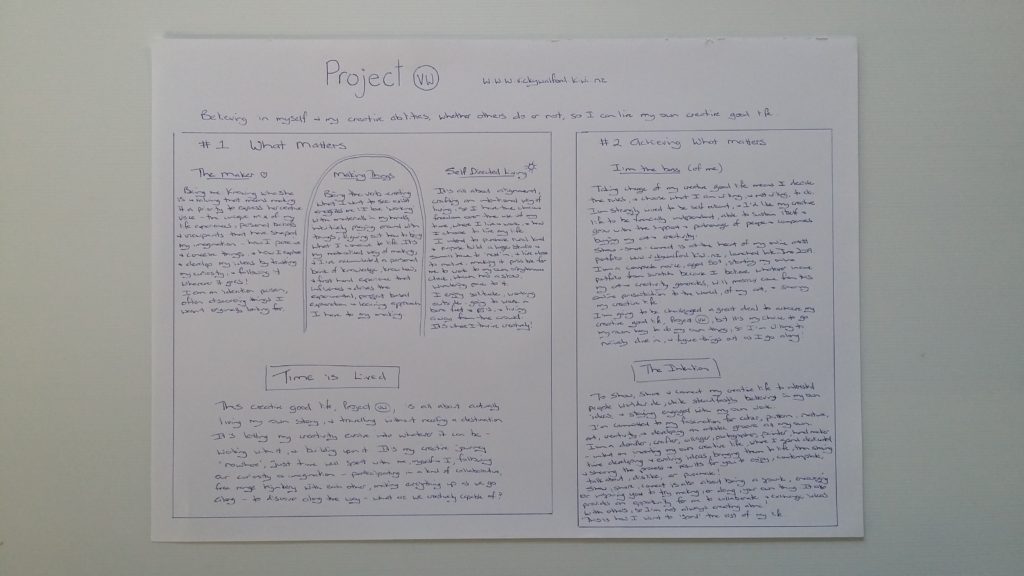 Project VW www.vickywilford.kiwi.nz
Believing in myself + my creative abilities, whether others do or not, so I can live my own creative good life.
#1 What Matters
The Maker ♡
Being me knowing who she
is + valuing that means making
it a priority to explore her creative
voice – the unique mix of my
life experiences, personal beliefs
+ viewpoints that have shaped
my imagination – how I perceive
+ conceive things, + how I explore
+ develop my ideas by trusting
my curiosity, + following it
wherever it goes!
I am an intention person,
often discovering things I
wasn't originally looking for.
Making Things
Being the verb creating
what I want to see exist
energises me. I love working
with materials in my hands,
intuitively playing around with
things, figuring out how to bring
what I conceive to life. It's
my preferred way of making,
it's accumulated a personal
bank of knowledge, know how,
+ first hand experience that
influences + drives the
experimental, project based
exploration + learning approach
I have to my making
Self Directed Living
It's all about alignment,
crafting an intentional way of
living, so I have the choice
freedom over the use of my
time, where I live + work, + how
I choose to live my life.
I intend to purchase rural land
to make + living, making it possible for
me to work to my own
clock, when
wandering pace to it.
I enjoy solitude, working
outside, going to work in
bare feet + PJ's, + living
away from the crowd.
It's where I thrive creatively!
Time is Lived
This creative good life, Project VW, is all about curiously
living my own story, + travelling without needing a destination
It's letting my creativity evolve into whatever it can be –
working with it, + building upon it. It's my creative journey
'nowhere', just time well spent with me, myself + I, following
our curiosity + imagination – participating in a kind of collaborative,
free range fly-bory with each other, making everything up as we go
along – to discover along the way – what are we creatively capable of?
#2 Achieving What Matters
I'm the boss (of me)
Taking charge of my creative good life means I decide
the rules, + choose what I am willing, + not willing, to do.
I'm strongly wired to be self reliant, + I'd like my creative
life to be financially independent, able to sustain itself +
grow with the support + patronage of people + companies
buying my art + creativity.
Show – share – connect is at the heart of my online artist
portfolio www.vickywilford.kiwi.nz, launched
I'm a complete novice, aged 50+, starting my online
portfolio from scratch because I believe whatever income
my art + creativity generates, will mostly come from this
online presentation to the world, of my art, + sharing
my creative life.
I'm going to be challenged a great deal to achieve my
creative good life Project VW, but it's my choice to go
my own way + do my own thing, so I'm willing to
naively dive in, + figure things out as I go along!
The Intention
To Show, Share + Connect my creative life to interested
people worldwide, while steadfastly believing in my own
ideas, + staying engaged with my own work.
I'm committed to my fascination for colour, pattern, nature,
art, creativity + develping an artistic groove all my own.
time developing + evolving ideas, bringing them to life, then sharing
+ showing the process + results for you to enjoy, contemplate,
talk about, dislike, or purchase!
Show, share + connect is also about being a spark, encouraging
or inspiring you to try making, or doing, your own thing. It also
provides an opportunity for me to collaborate + exchange ideas
with others, so I'm not always creating alone!
This is how I want to 'spend' the rest of my life.